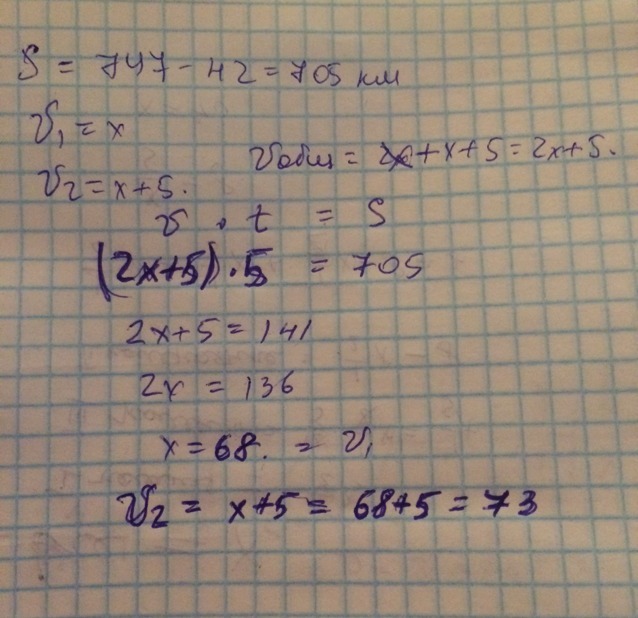 S = 747 - 42 = 705 км
V₁ = x
Vобщ = x + x + 5 = 2x + 5.
V₂ = x + 5.
v · t = S
(2x+5) · 5 = 705
2x + 5 = 141
2x = 136
x = 68. = V₁
V₂ = x + 5 = 68 + 5 = 73